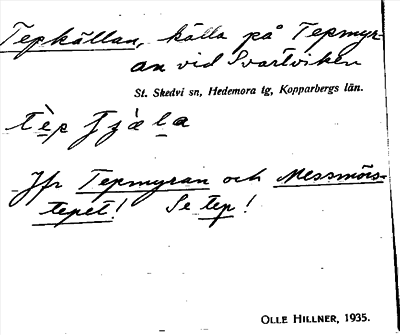 Tepkällan, källa på Tepmyr-
an vid Svartviken
St. Skedvi sn, Hedemora tg, Kopparbergs län.
Jfr Tepmyran och Messmörs-
tepet! Se tep!
OLLE HILLNER, 1935.